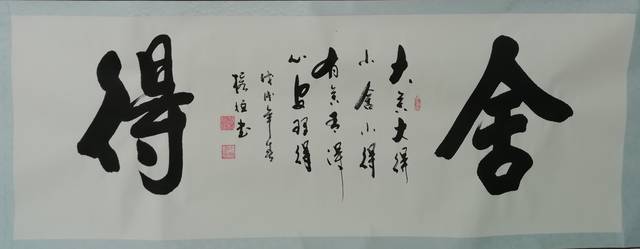 舍
大舍大得
小舍小得
有舍有得
心安理得
戊戌年春
书
得